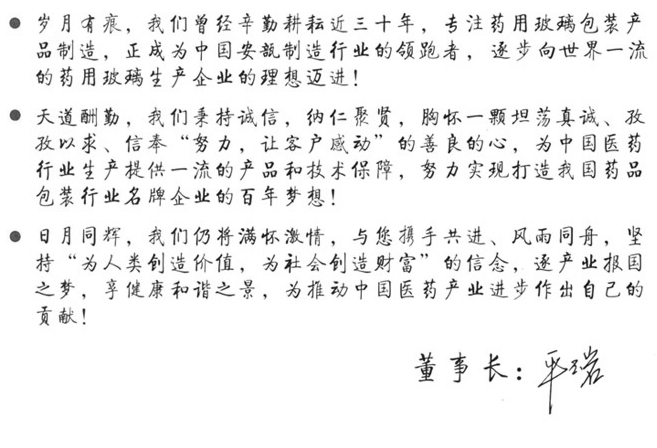 ● 岁月有痕，我们曾经辛勤耕耘近三十年，专注药用玻璃包装产
品制造，正成为中国安瓿制造行业的领跑者，逐步向世界一流
的药用玻璃生产企业的理想迈进！
● 天道酬勤，我们秉持诚信，纳仁聚贤，胸怀一颗坦荡真诚、孜
孜以求、信奉“努力，让客户感动”的善良的心，为中国医药
行业生产提供一流的产品和技术保障，努力实现打造我国药品
包装行业名牌企业的百年梦想！
● 日月同辉，我们仍将满怀激情，与您携手共进、风雨同舟，坚
持“为人类创造价值，为社会创造财富”的信念，逐产业报国
之梦，享健康和谐之景，为推动中国医药产业进步作出自己的
贡献！
董事长：